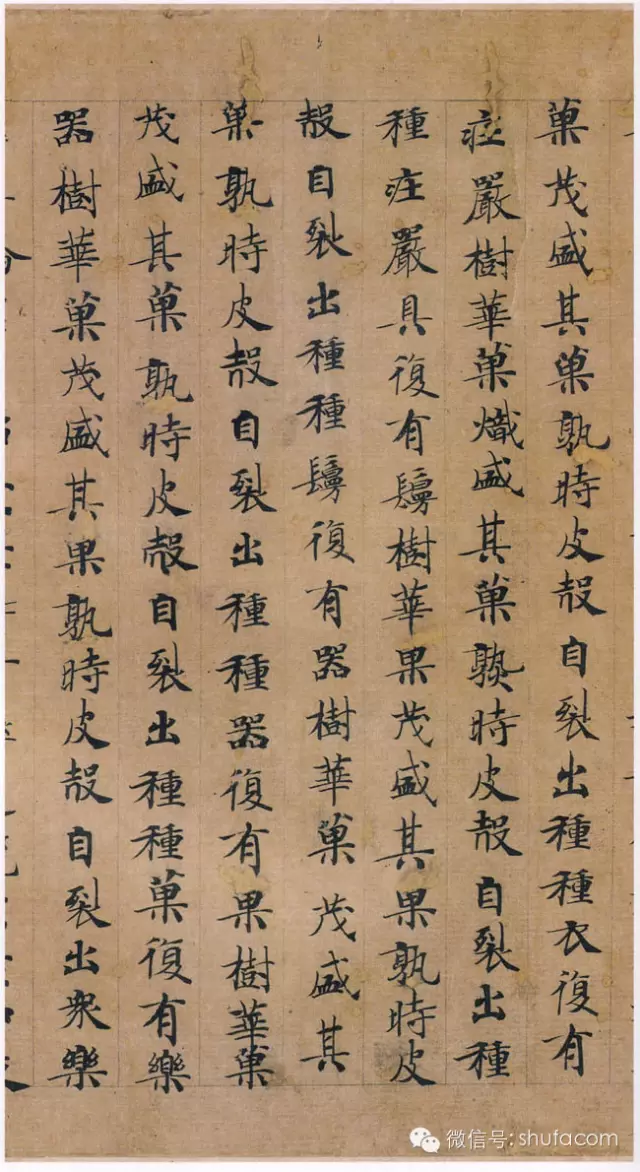 菓茂盛其菓孰時皮殼自裂出種種衣復有
㽵嚴樹華菓熾盛其菓熟時皮殼自裂出種
種㽵嚴具復有鬘樹華果茂盛其果孰時皮
殼自裂出種種鬘復有器樹華菓茂盛其
菓孰時皮殼自裂出種種器復有果樹華菓
茂盛其菓孰時皮殼自裂出種種菓復有樂
器樹華菓茂盛其果孰時皮殼自裂出衆樂
微信号: shufacom